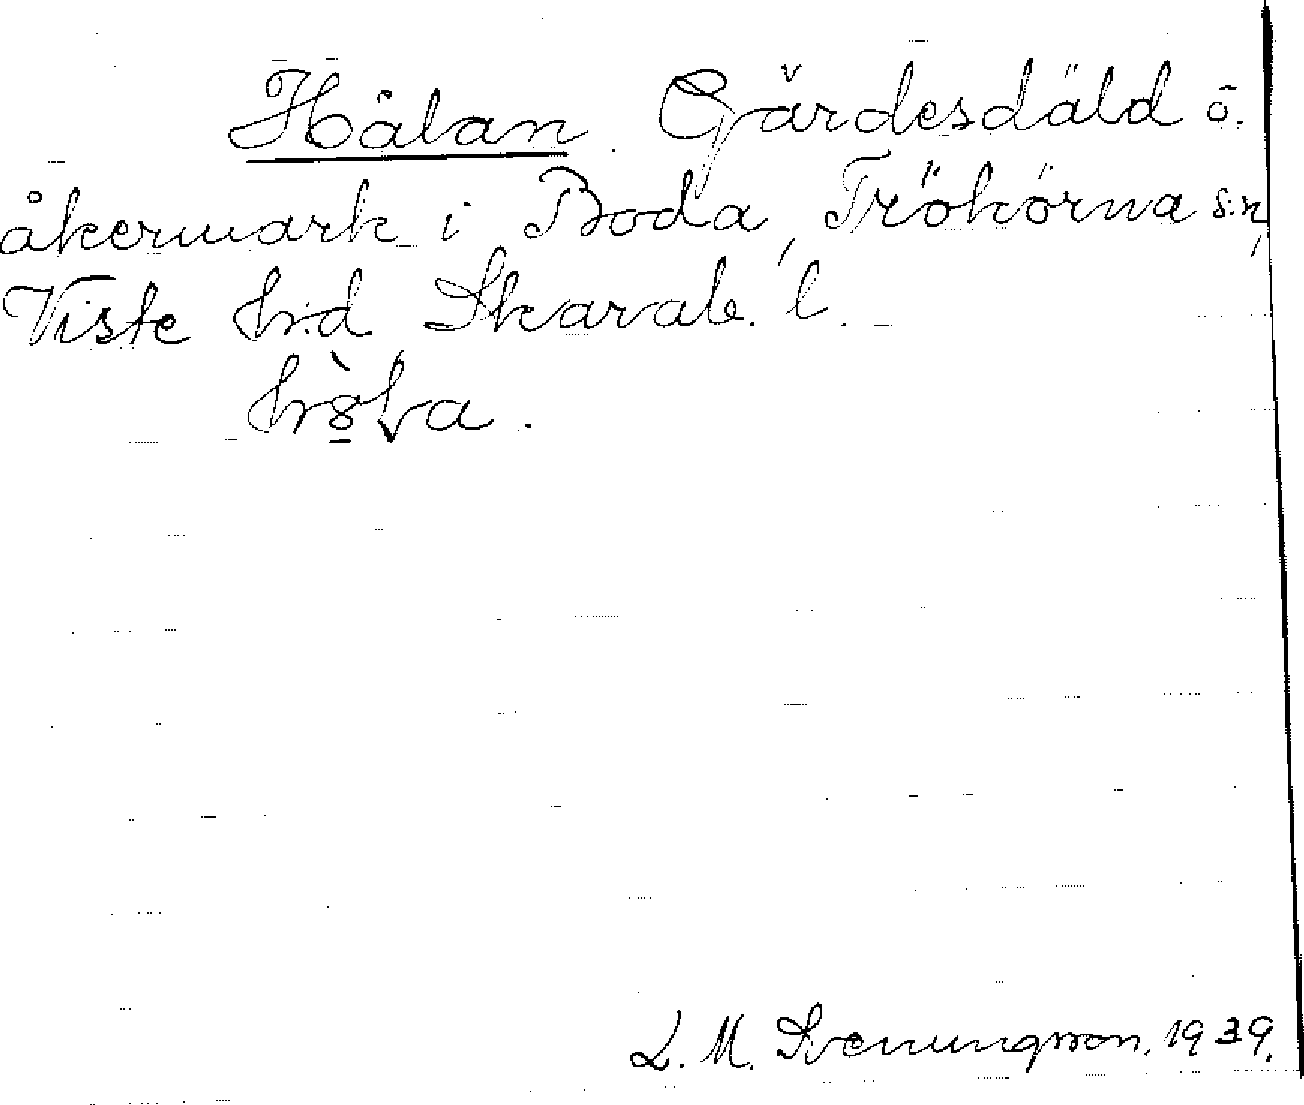 Hålan. Gärdesdäld ö.
åkermark i Boda, Trökörna s:n,
Viste h:d Skarab. l.
L. M. Svenungsson. 1939.